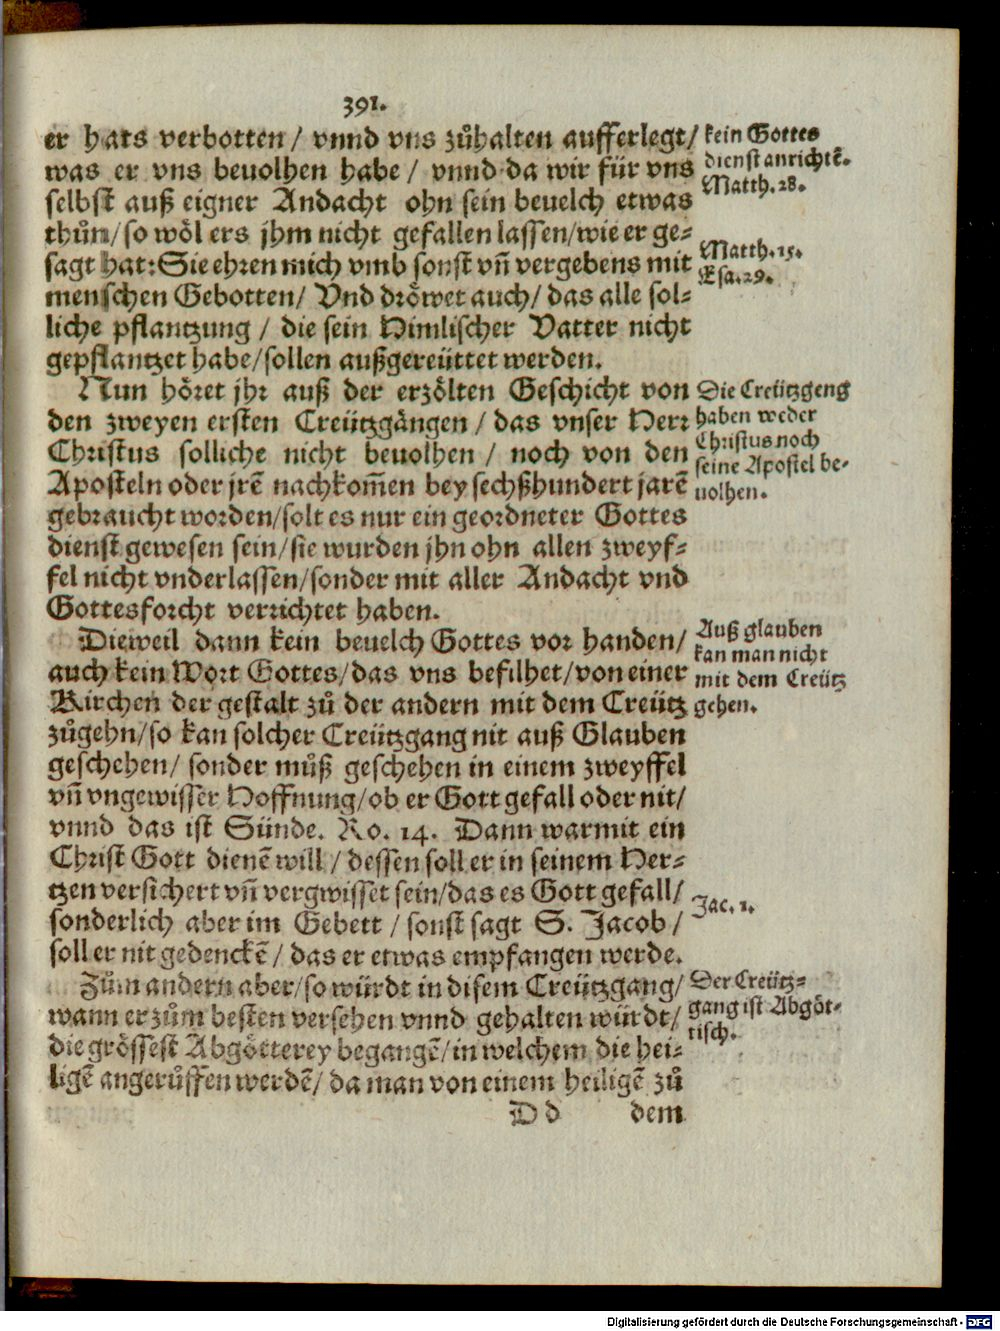 391.
er hats verbotten / vnnd vns zůhalten aufferlegt/
was er vns beuolhen habe / vnnd da wir für vns
selbst auß eigner Andacht ohn sein beuelch etwas
thůn/so wöl ers jhm nicht gefallen lassen/wie er ge-
sagt hat: Sie ehren mich vmb sonst vñ vergebens mit
menschen Gebotten/ Vnd dröwet auch/ das alle sol-
liche pflantzung / die sein Himlischer Vatter nicht
gepflantzet habe/sollen außgereüttet werden.
kein Gottes
dienst anrichtẽ.
Matth. 28.
Matth. 15.
Esa. 29.
Nun höret jhr auß der erzölten Geschicht von
den zweyen ersten Creützgängen / das vnser Herr
Christus solliche nicht beuolhen / noch von den
Aposteln oder jrẽ nachkom̃en bey sechßhundert jarẽ
gebraucht worden/solt es nur ein geordneter Gottes
dienst gewesen sein/sie wurden jhn ohn allen zweyf-
fel nicht vnderlassen/sonder mit aller Andacht vnd
Gottesforcht verrichtet haben.
Die Creützgeng
haben weder
Christus noch
seine Apostel be-
uolhen.
Dieweil dann kein beuelch Gottes vor handen/
auch kein Wort Gottes/das vns befilhet/von einer
Kirchen der gestalt zů der andern mit dem Creütz
zůgehn/so kan solcher Creützgang nit auß Glauben
geschehen/ sonder můß geschehen in einem zweyffel
vñ vngewisser Hoffnung/ob er Gott gefall oder nit/
vnnd das ist Sünde. Ro. 14. Dann warmit ein
Christ Gott dienẽ will / dessen soll er in seinem Her-
tzen versichert vñ vergwisset sein/das es Gott gefall/
sonderlich aber im Gebett / sonst sagt S. Jacob /
soll er nit gedenckẽ / das er etwas empfangen werde.
Auß glauben
kan man nicht
mit dem Creütz
gehen.
Jac. 1.
Zům andern aber/so würdt in disem Creützgang/
wann er zům besten versehen vnnd gehalten würdt/
die grössest Abgötterey begangẽ/in welchem die hei-
ligẽ angerůffen werdẽ/ da man von einem heiligẽ zů
Der Creütz-
gang ist Abgöt-
tisch.
D d dem
Digitalisierung gefördert durch die Deutsche Forschungsgemeinschaft - DFG